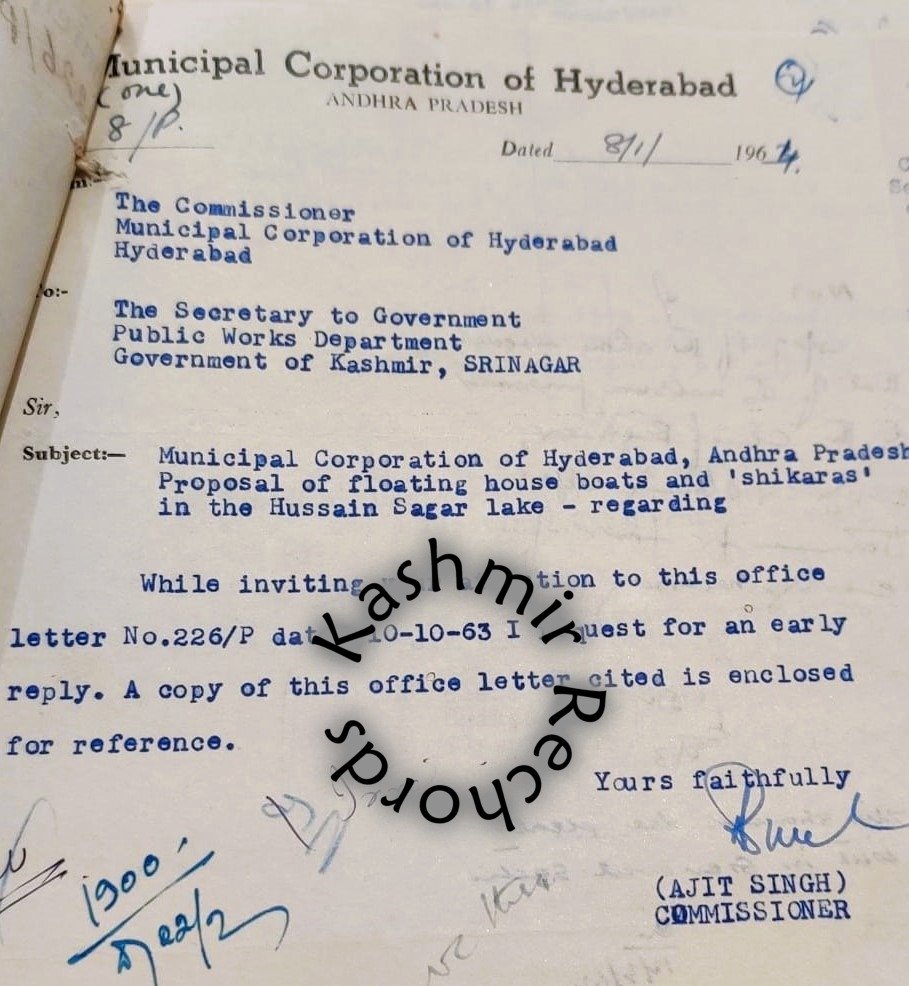 Municipal Corporation of Hyderabad
ANDHRA PRADESH
(one)
8/P.
Dated 8/1/ 1964.
The Commissioner
Municipal Corporation of Hyderabad
Hyderabad
To:-
The Secretary to Government
Public Works Department
Government of Kashmir, SRINAGAR
Sir,
Subject:— Municipal Corporation of Hyderabad, Andhra Pradesh
Proposal of floating house boats and 'shikaras'
in the Hussain Sagar lake - regarding
While inviting tion to this office
letter No.226/P dat 10-10-63 I quest for an early
reply. A copy of this office letter cited is enclosed
for reference.
Kashmir Rechords
Yours faithfully
(AJIT SINGH)
COMMISSIONER
1900
22/2